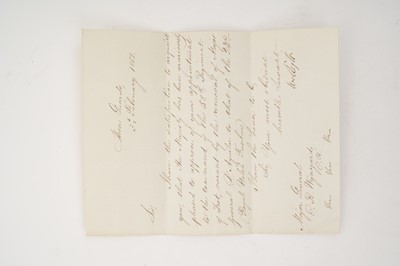 Horse Guards
5th February 1862
Sir,
I have the satisfaction to acquaint
you, that Her Majesty has been graciously
pleased to approve of your appointment
to the command of the 58th Regiment
of Foot, vacant by the removal of Major
General to that of the 23d
Royal Welsh Fusiliers
I have the honor to be
Sir, Your most obedient
humble Servant
Major General
E. B. Wynyard
C.B.